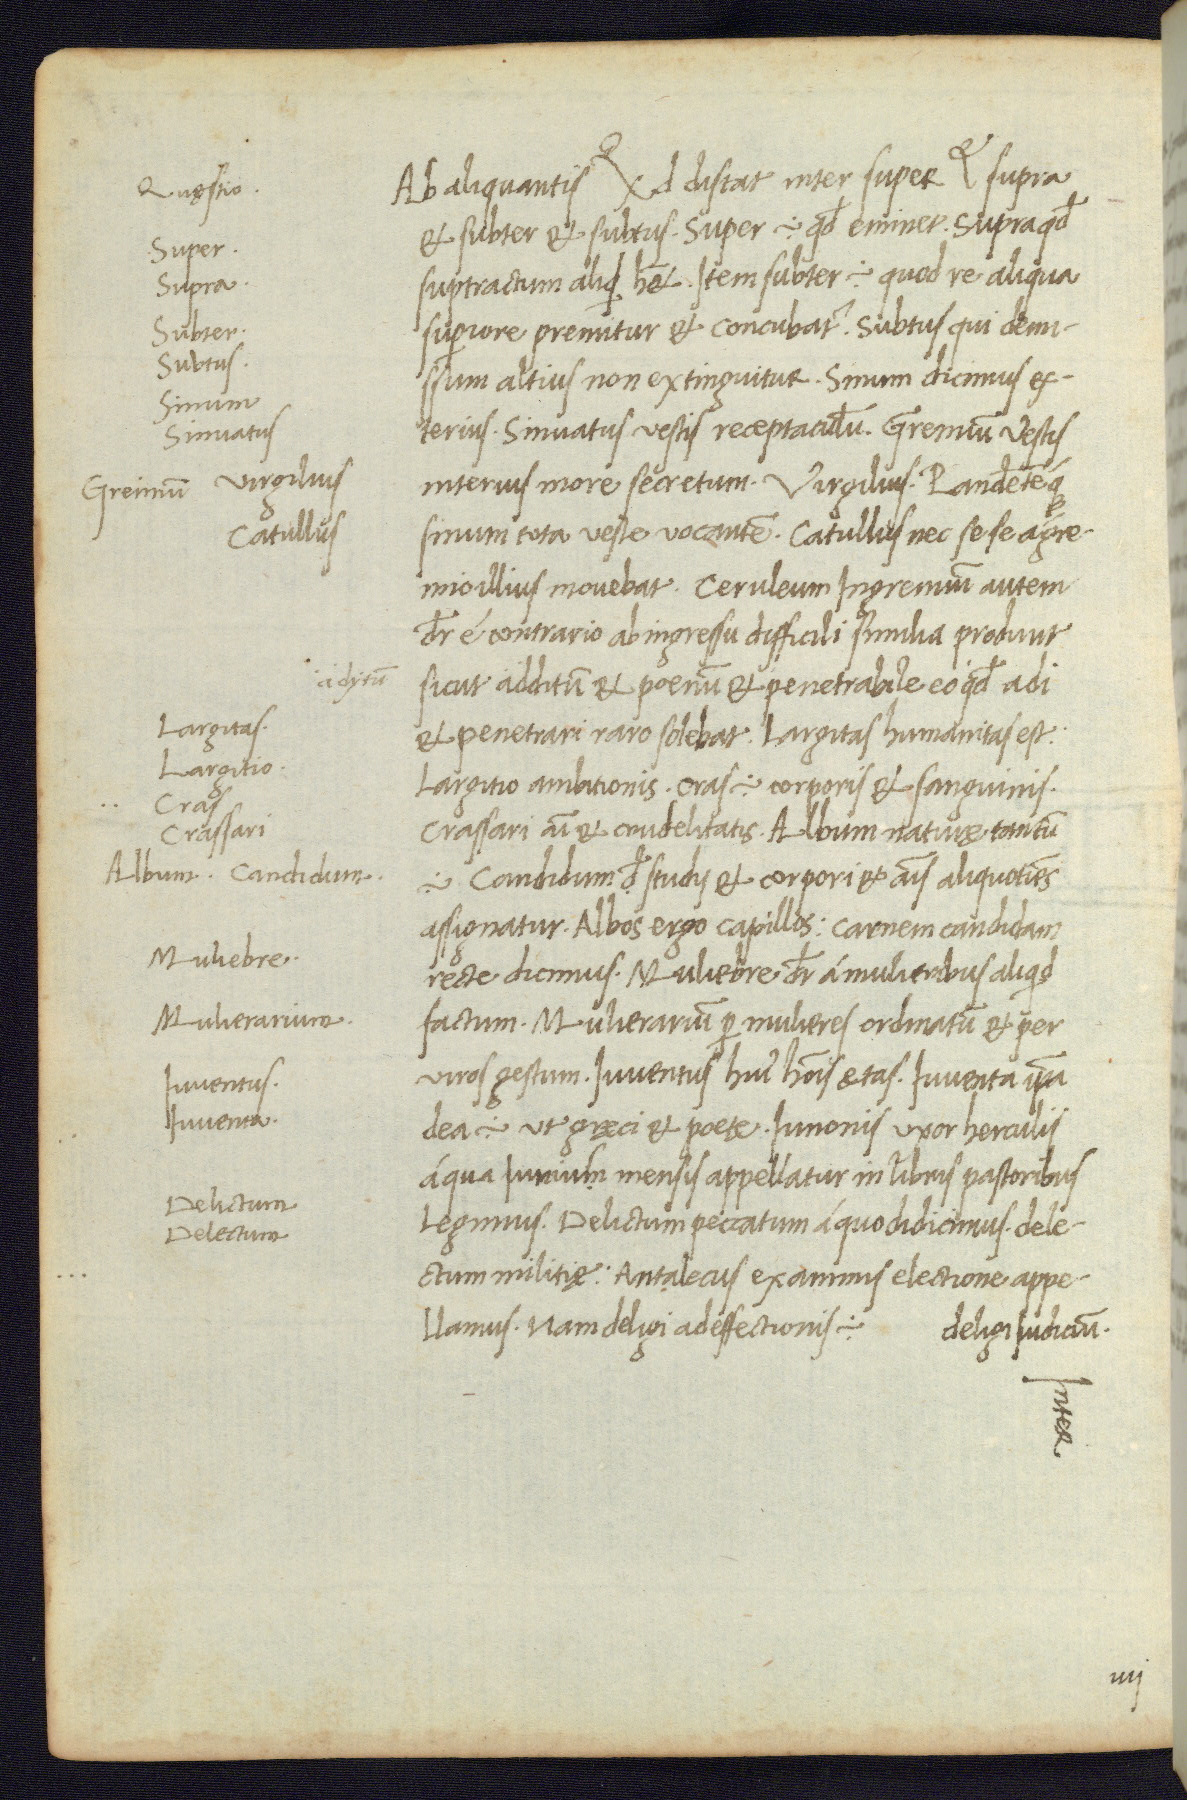 Quęstio.
Super.
Supra.
Subter.
Subtus.
Sinum
Sinuatus
Greimiũ Virgilius
Catullus
adytũ
Largitas.
Largitio.
Cras
Crassari
Album. Candidum.
Muliebre.
Mulierarium.
Iuventus.
Iuventa.
Delictum
Delectum
Ab aliquantis Qd distat inter super & supra
& subter & subtus. Super ÷ qđ eminet. Supra qđ
suptractum aliqđ hẽt. Item subter ÷ quod re aliqua
supiore premitur & concubat᷑. Subtus qui demi-
ssum altius non extinguitur. Sinum dicimus ex-
terius. Sinuatus vestis receptaculũ. Gremiũ Vestis
interius more secretum. Virgilius. Pandetẽ q̃
sinum tota veste vocantẽ. Catullus nec se se agre-
mio illius movebat. Ceruleum Ingremiũ autem
dr̃ é contrario ab ingressu difficili similia produnt
sicut additũ & poenũ & penetrabile eo qđ adi
& penetrari raro solebat. Largitas humanitas est.
Largitio ambitionis. Cras ÷ corporis & sanguinis.
Crassari aĩ & crudelitatis. Album naturę tantũ
÷ Candidum đ studij & corpori & aĩs aliquotiẽs
assignatur. Albos ergo capillos: carnem candidam
recte dicimus. Muliebre dr̃ á mulieribus aliqđ
factum. Mulierariũ p mulieres ordinatũ & per
viros gestum. Iuventus hui hoĩs ętas. Iuventa ipa
dea ÷ ut græci & poetę. Iunonis uxor herculis
áqua Iunium mensis appellatur in libris pastoribus
Legimus. Delictum peccatum á quo didicimus. dele-
ctum militię. Antalecius examinis electione appe-
llamus. Nam deligi ad effectionis ÷ deligi Iudiciũ.
Inter
iiij